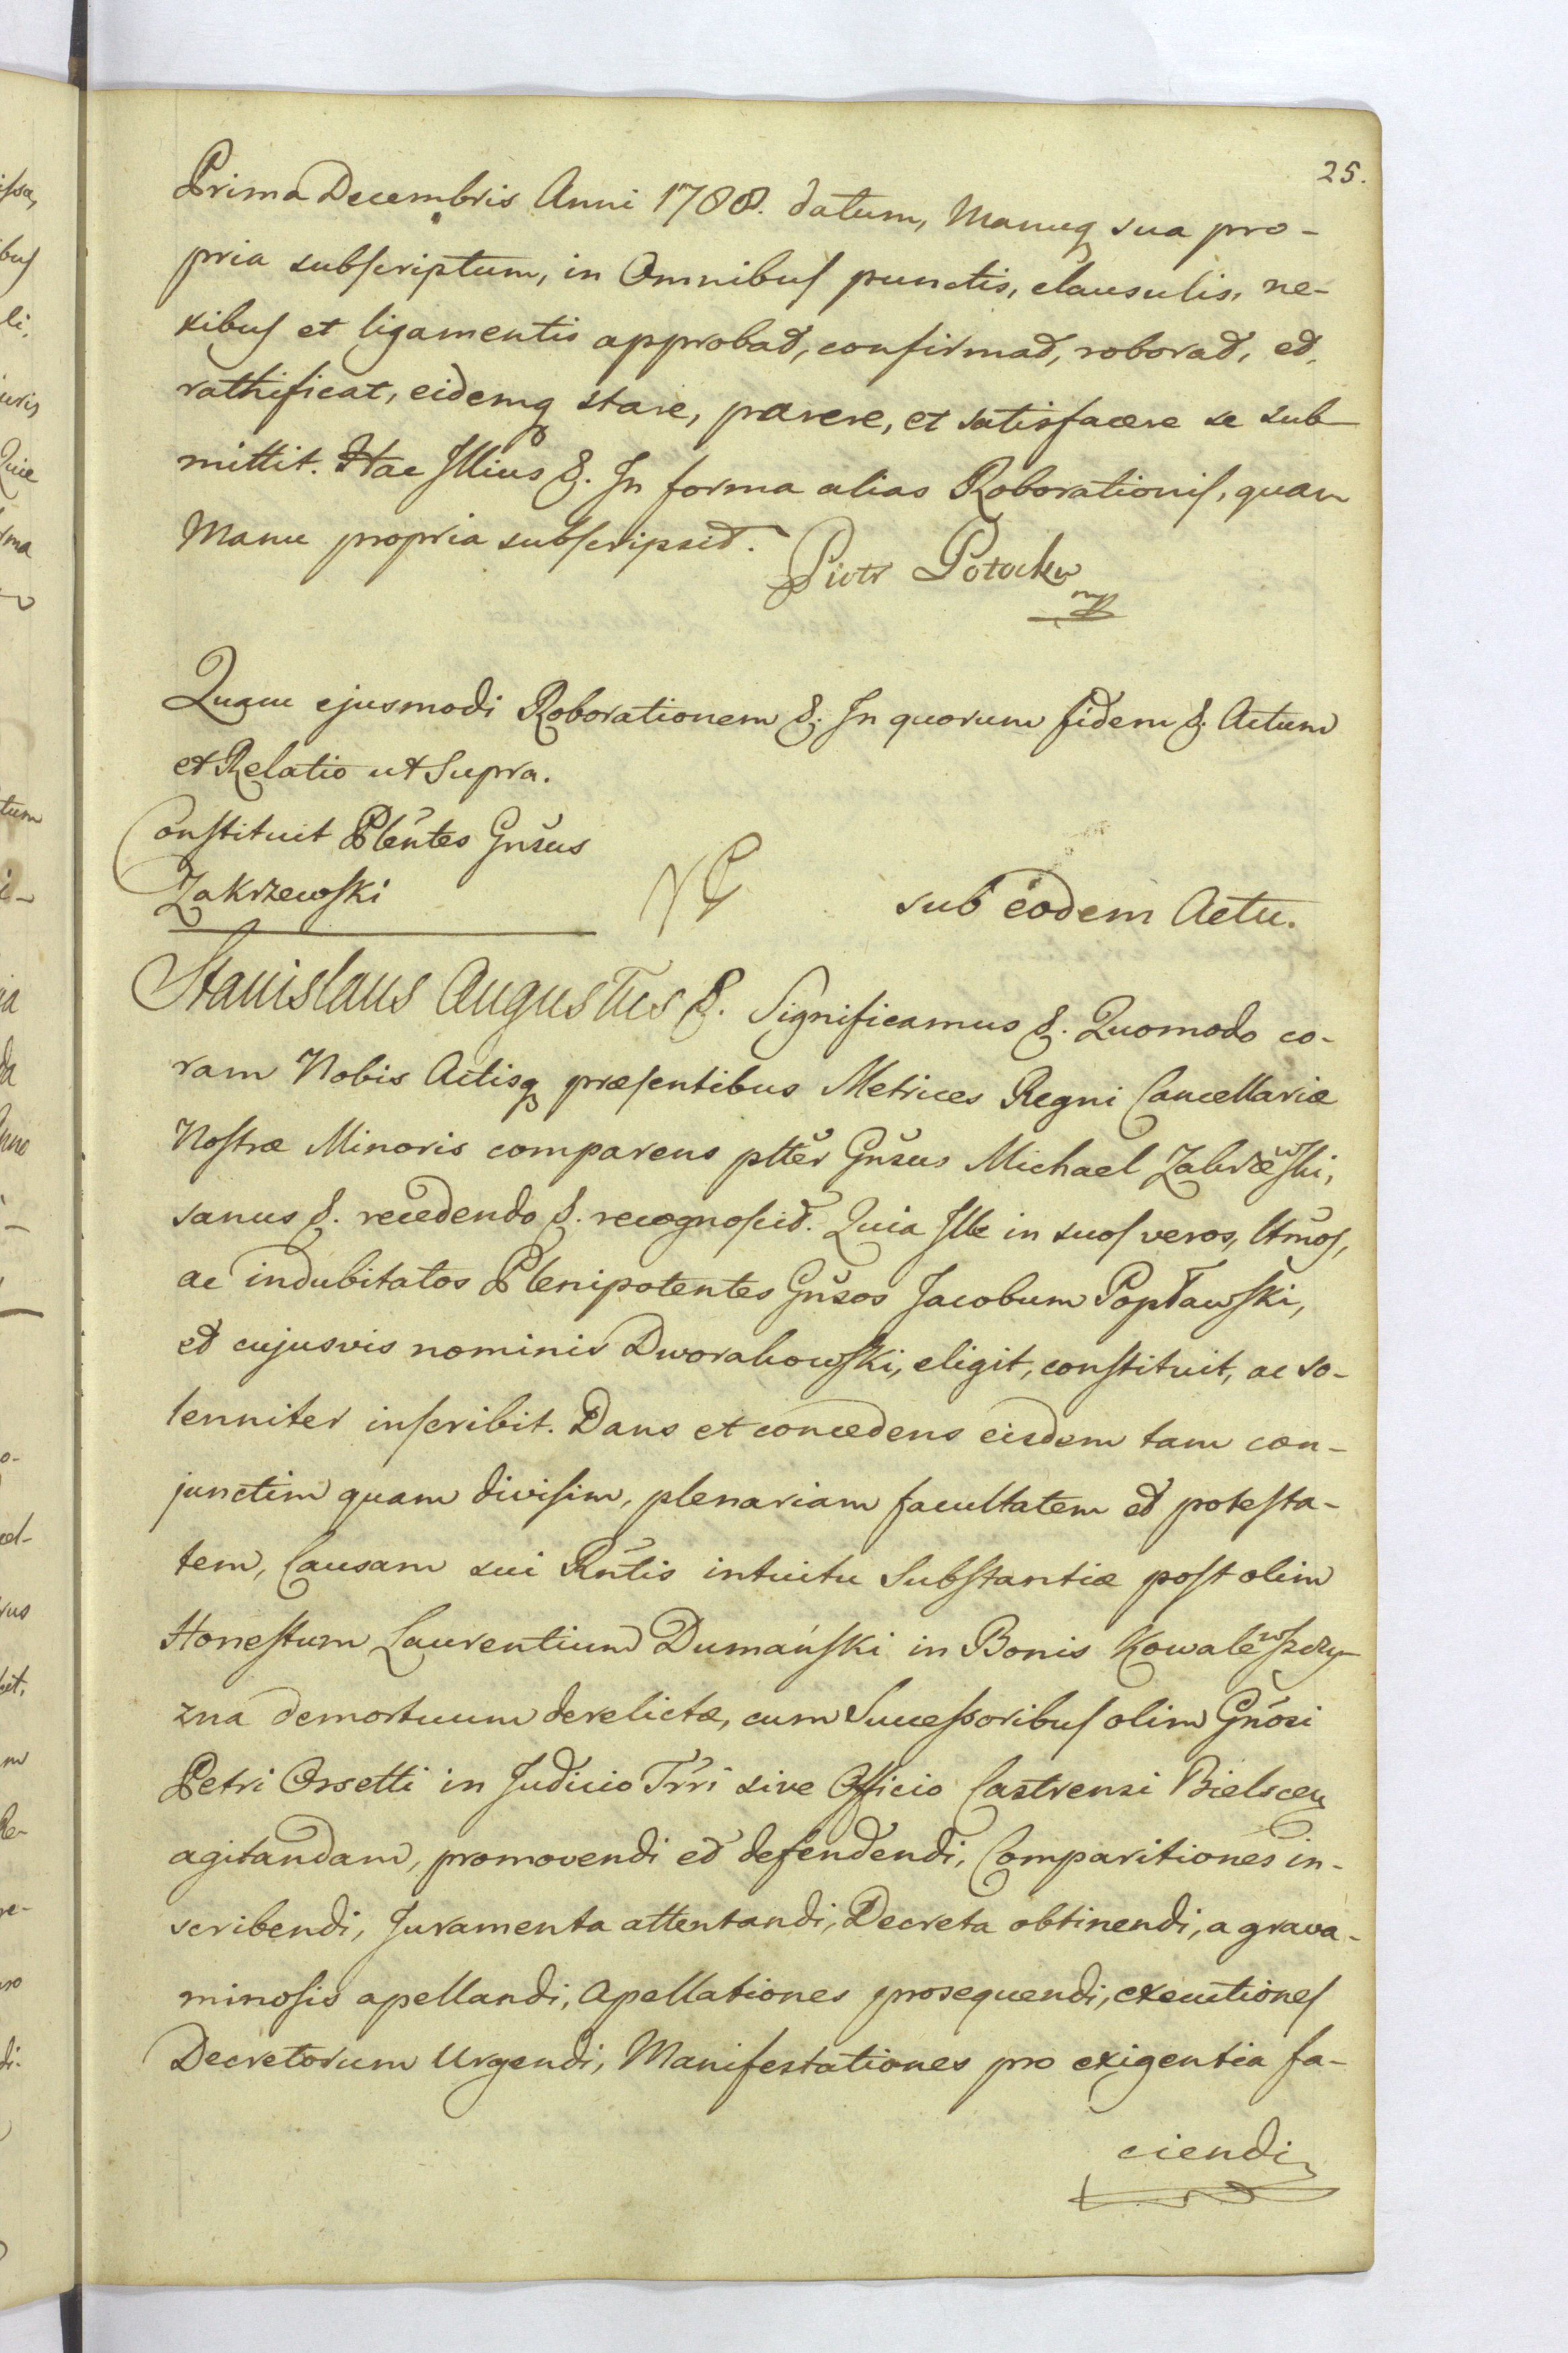 25.
Prima Decembris Anni 1788. datum, Manuq sua pro-
pria subscriptum, in Omnibus punctis, clausulis, ne-
xibus et ligamentis approbat, confirmat, roborat, et
rathificat, eidemq stare, parere, et satisfacere se sub
mittit. Hac Illius &. In forma alias Roborationis, quam
Manu propria subscripsit. Piotr Potocki
mp
Quam ejusmodi Roborationem &. In quorum fidem &. Actum
et Relatio ut Supra.
Constituit Plentes Gnsus
Zakrzewski
sub eodem Actu.
Stanislaus Augustus &. Significamus &. Quomodo co-
ram Nobis Actisq præsentibus Metrices Regni Cancellariæ
Nostræ Minoris comparens pltter Gnsus Michael Zakrzewski,
sanus &. recedendo &. recognoscit. Quia Ille in suos veros, lttmos,
ac indubitatos Plenipotentes Gnsos Jacobum Popławski,
et cujusvis nominis Dworakowski, eligit, constituit, ac so-
lenniter inscribit. Dans et concedens eisdem tam con-
junctim quam divisim, plenariam facultatem et potesta-
tem, Causam sui Rntis intuitu Substantiæ post olim
Honestum Laurentium Dumański in Bonis Kowalewszczy-
zna demortuum derelictæ, cum Successoribus olim Gnosi
Petri Orsetti in Judicio Trri sive Officio Castrensi Bielscen
agitandam, promovendi et defendendi, Comparitiones in-
scribendi, Juramenta attentandi, Decreta obtinendi, a grava-
minosis apellandi, Apellationes prosequendi, executiones
Decretorum Urgendi, Manifestationes pro exigentia fa-
ciendi